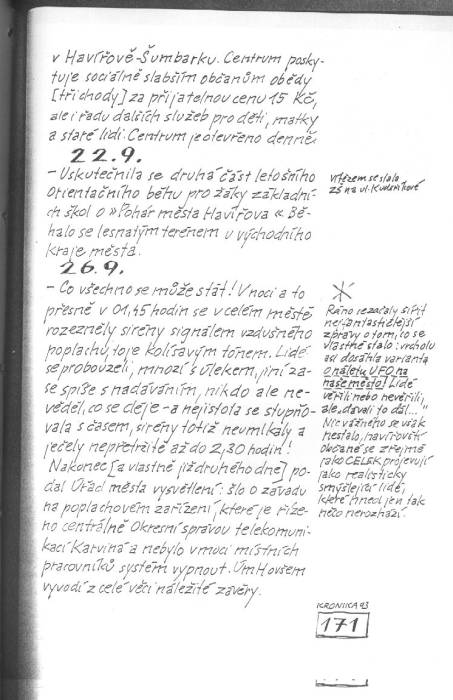 v Havířově-Šumbarku. Centrum posky-
tuje sociálně slabším občanům obědy
[tři chody] za přijatelnou cenu 15 Kč,
ale i řadu dalších služeb pro děti, matky
a staré lidi. Centrum je otevřeno denně.
22.9.
- Uskutečnila se druhá část letošního
Orientačního běhu pro žáky základní-
ch škol o »Pohár města Havířova« Bě-
halo se lesnatým terénem u východního
kraje města.
vítězem se stala
ZŠ na ul. K.
26.9.
- Co všechno se může stát! V noci a to
přesně v 01,45 hodin se v celém městě
rozezněly sirény signálem vzdušného
poplachu, to je kolísavým tónem. Lidé
se probouzeli, mnozí s úlekem, jiní za-
se spíše s nadáváním, nikdo ale ne-
věděl, co se děje - a nejistota se stupňo-
vala s časem, sirény totiž neumlkaly a
ječely nepřetržitě až do 2,30 hodin!
Nakonec [a vlastně již druhého dne] po-
dal Úřad města vysvětlení: šlo o závadu
na poplachovém zařízení, které je říze-
no centrálně Okresní správou telekomuni-
kací Karviná a nebylo v moci místních
pracovníků systém vypnout. ÚmH ovšem
vyvodí z celé věci náležité závěry.
Ráno se začaly šířit
nejfantastičtější
zprávy o tom, co se
vlastně stalo: vrcholu
asi dosáhla varianta
o náletu UFO na
naše město! Lidé
věřili nebo nevěřili,
ale „dávali to dál..."
Nic vážného se však
nestalo, havířovští
občané se zřejmě
jako CELEK projevují
jako realisticky
smýšlející lidé,
které hned jen tak
něco nerozhází.
KRONIKA 93
171